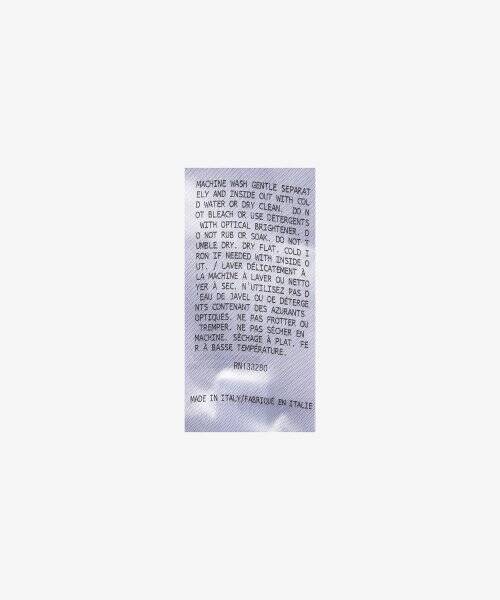 MACHINE WASH GENTLE SEPARAT
ELY AND INSIDE OUT WITH COL
D WATER OR DRY CLEAN.  DO N
OT BLEACH OR USE DETERGENTS
WITH OPTICAL BRIGHTENER. D
O NOT RUB OR SOAK. DO NOT T
UMBLE DRY. DRY FLAT. COLD I
RON IF NEEDED WITH INSIDE O
UT. / LAVER DÉLICATEMENT À
LA MACHINE À LAVER OU NETTO
YER À SEC. N'UTILISEZ PAS D
'EAU DE JAVEL OU DE DÉTERGE
NTS CONTENANT DES AZURANTS
OPTIQUES. NE PAS FROTTER OU
TREMPER. NE PAS SÉCHER EN
MACHINE. SÉCHAGE À PLAT. FE
R À BASSE TEMPÉRATURE.
RN133280
MADE IN ITALY/FABRIQUÉ EN ITALIE